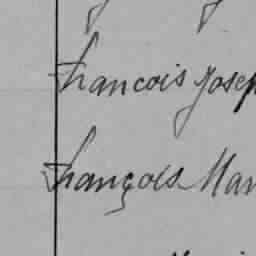 Francois Josep
François Mar